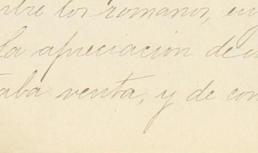 los romanos, en
la apreciacion de
taba venta, y de con